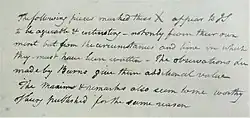 The following pieces marked thus X appear to D^r
to be agreable & interesting – not only from their own
merit but from the circumstances and time in which
they must have been written – The observations &c
made by Burns give them additional value
The Maxims & remarks also seem some worthy
of being published for the same reason